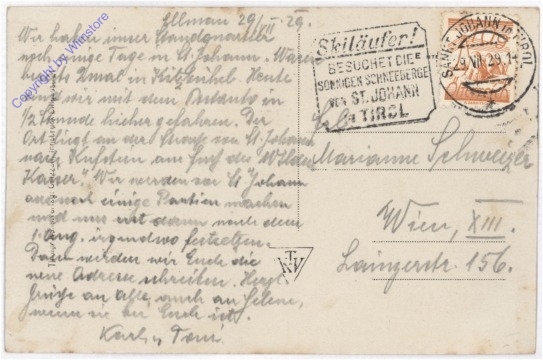 Ellmau 29/V. 29.
Wir haben unser Standquartier
noch einige Tage in St Johann. Waren
bereits 2mal in Kitzbühel. Heute
sind wir mit dem Autobus in
1/2 Stunde hieher gefahren. Der
Ort liegt an der Straße von St Johann
nach Kufstein am fuß des "Wilden
Kaiser". Wir werden von St Johann
aus noch einige Partien machen
und uns mit dann nach dem
1. Aug. irgendwo festsetzen.
Dann werden wir Euch die
neue Adresse schreiben. Herzl.
Grüße an Alle, auch an Helene,
wenn sie bei Euch ist.
Karl u Toni
Skiläufer!
BESUCHET DIE
SONNIGEN SCHNEEBERGE
VON ST. JOHANN
in TIROL
SANKT JOHANN in TIROL
29 VII 29
Marianne Schweiger
Wien, XIII.
Lainzerstr. 156.
TKV
Copyright by Winstore